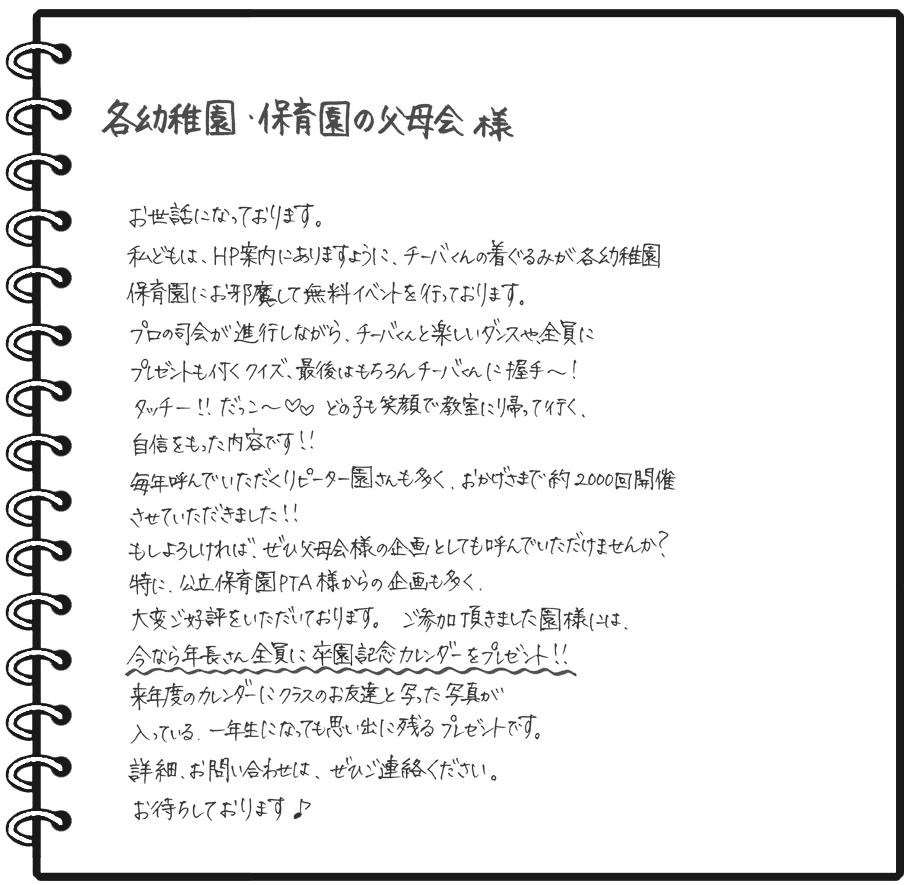 各幼稚園・保育園の父母会 様
お世話になっております。
私どもは、HP案内にありますように、チーバくんの着ぐるみが各幼稚園
保育園にお邪魔して無料イベントを行っております。
プロの司会が進行しながら、チーバくんと楽しいダンスや、全員に
プレゼントも付くクイズ、最後はもちろんチーバくんに握手〜!
タッチー!! だっこ〜♡♡ どの子も笑顔で教室に帰って行く、
自信をもった内容です!!
毎年呼んでいただくリピーター園さんも多く、おかげさまで約2000回開催
させていただきました!!
もしよろしければ、ぜひ父母会様の企画としても呼んでいただけませんか?
特に、公立保育園PTA様からの企画も多く、
大変ご好評をいただいております。 ご参加頂きました園様には、
今なら年長さん全員に卒園記念カレンダーをプレゼント!!
来年度のカレンダーにクラスのお友達と写った写真が
入っている、一年生になっても思い出に残るプレゼントです。
詳細、お問い合わせは、ぜひご連絡ください。
お待ちしております♪